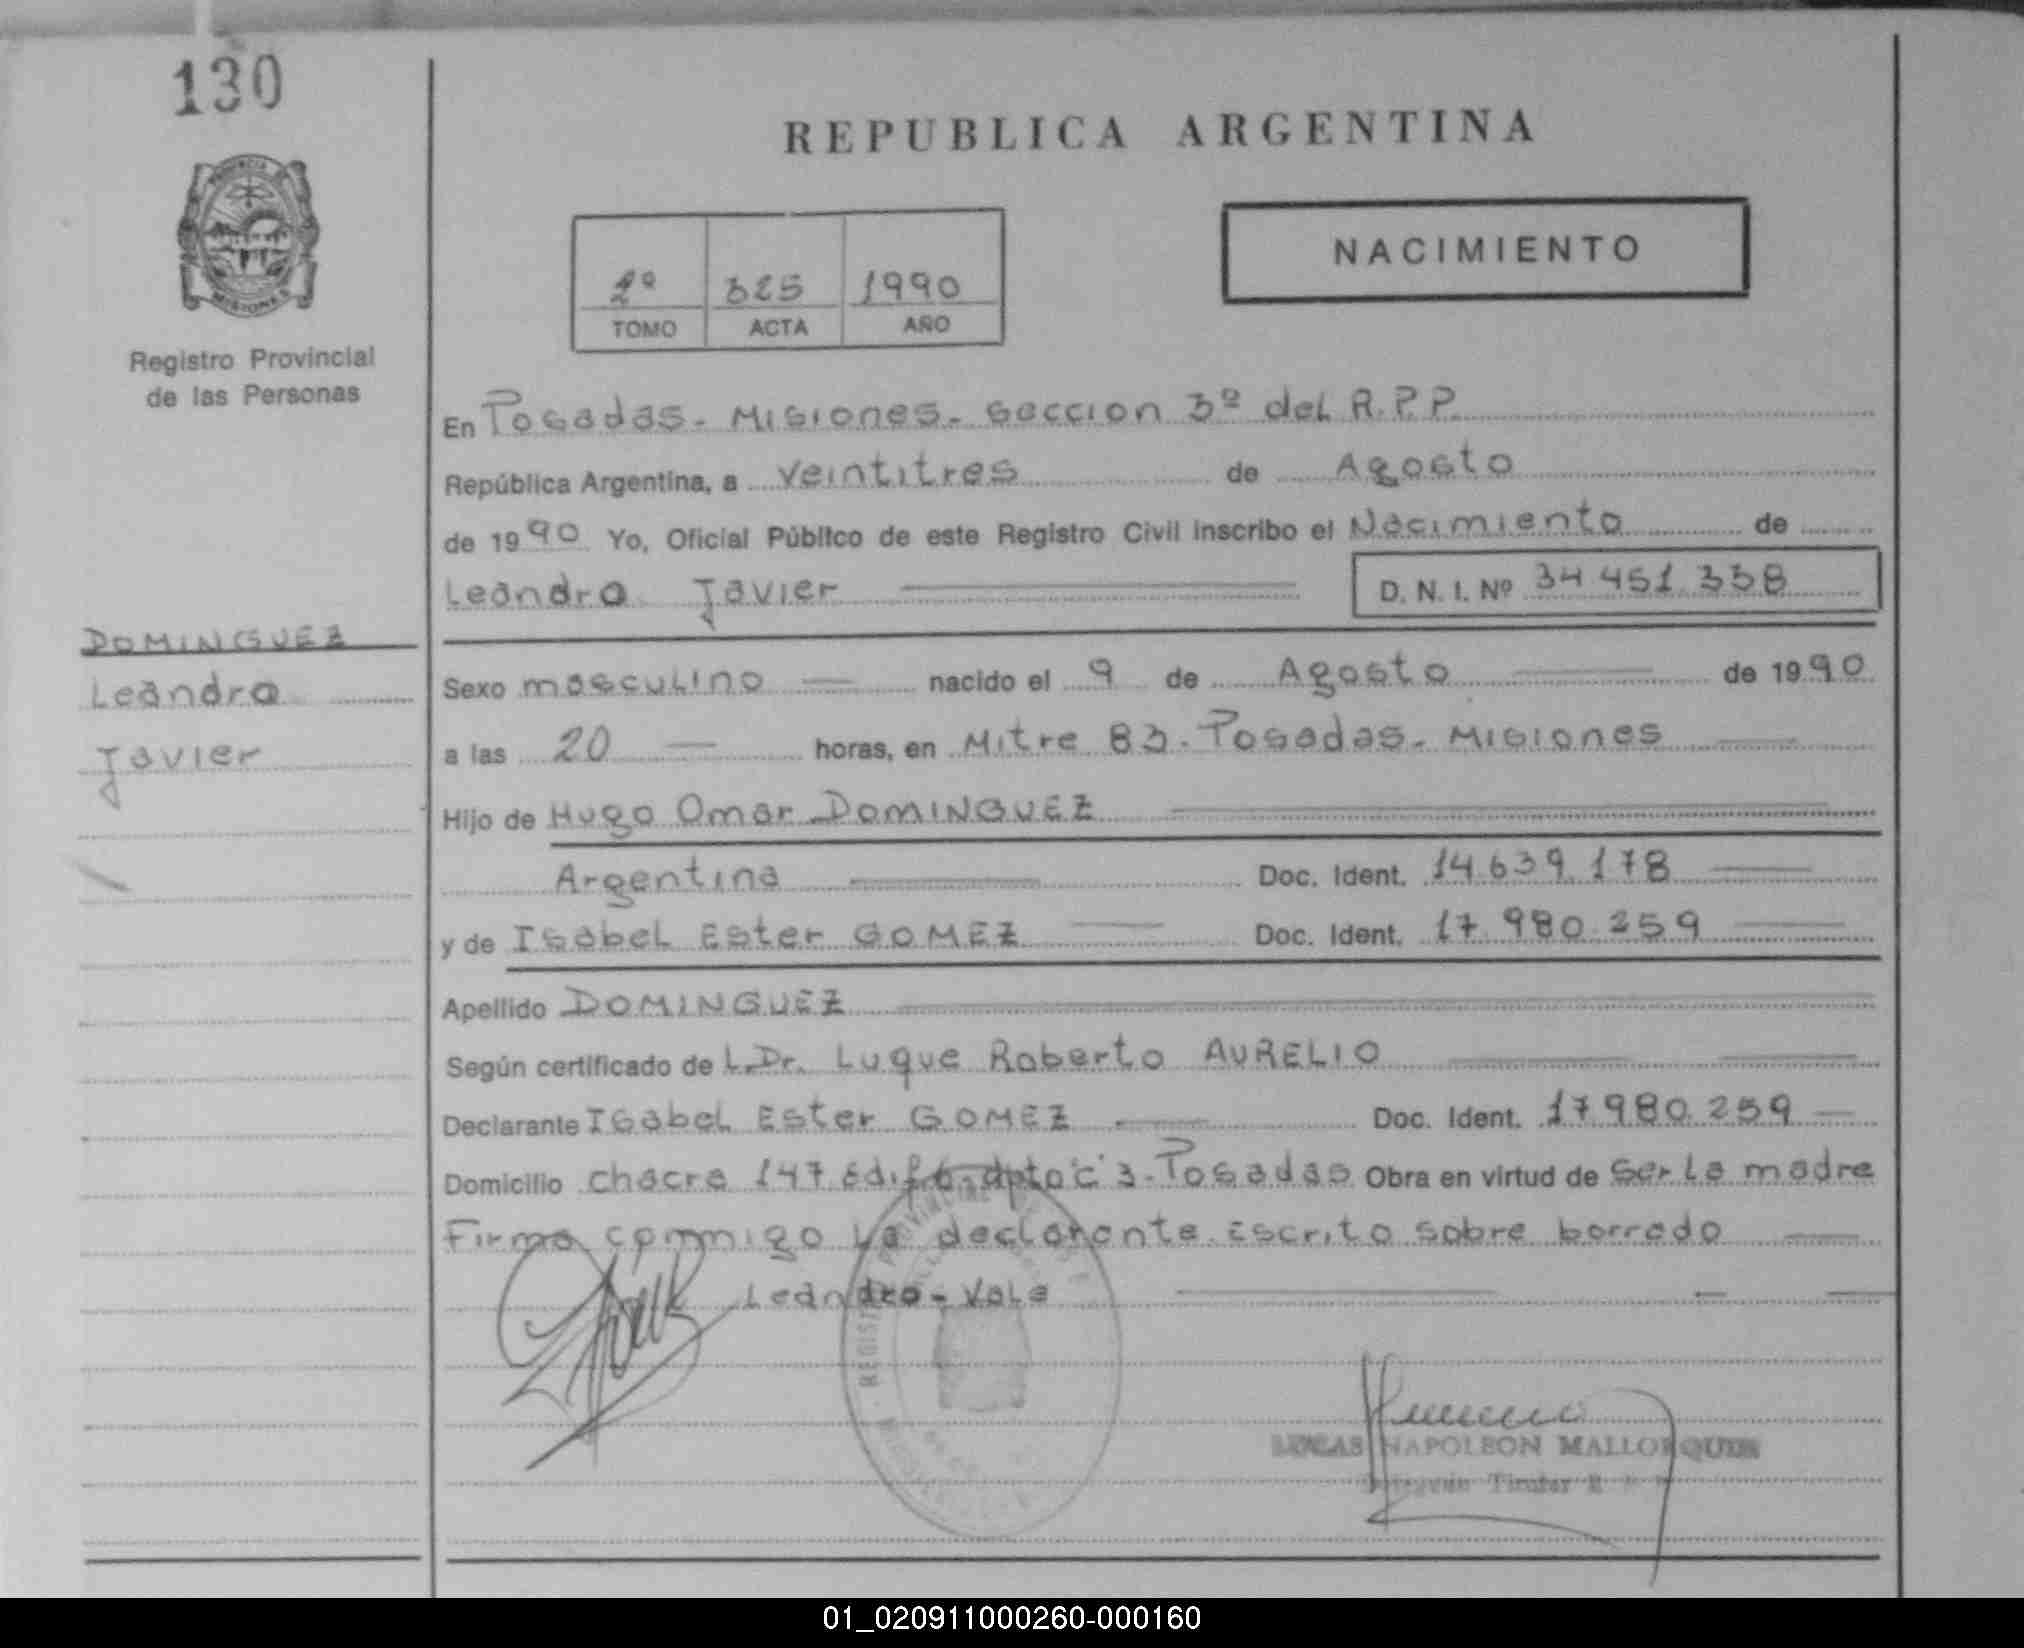 130
REPUBLICA ARGENTINA
NACIMIENTO
2º 325 1990
TOMO ACTA AÑO
MISIONES
Registro Provincial
de las Personas
En Posadas - Misiones - seccion 3º del R.P.P.
República Argentina, a veintitres de Agosto
de 1990 Yo, Oficial Público de este Registro Civil inscribo el Nacimiento de
Leandro Javier D. N. I. Nº 34.451.338
DOMINGUEZ
Leandro
Javier
Sexo masculino nacido el 9 de Agosto de 1990
a las 20 horas, en Mitre 83 - Posadas - Misiones
Hijo de Hugo Omar DOMINGUEZ
Argentina Doc. Ident. 14.639.178
y de Isabel Ester GOMEZ Doc. Ident. 17.980.259
Apellido DOMINGUEZ
Según certificado de L.Dr. Luque Roberto AURELIO
Declarante Isabel Ester GOMEZ Doc. Ident. 17.980.259
Domicilio chacra 147 edif 6 dpto "C" 3 - Posadas Obra en virtud de ser la madre
Firma conmigo la declarante. Escrito sobre borrado
Leandro - Vale
LUCAS NAPOLEON MALLORQUIN
Titular
01_020911000260-000160